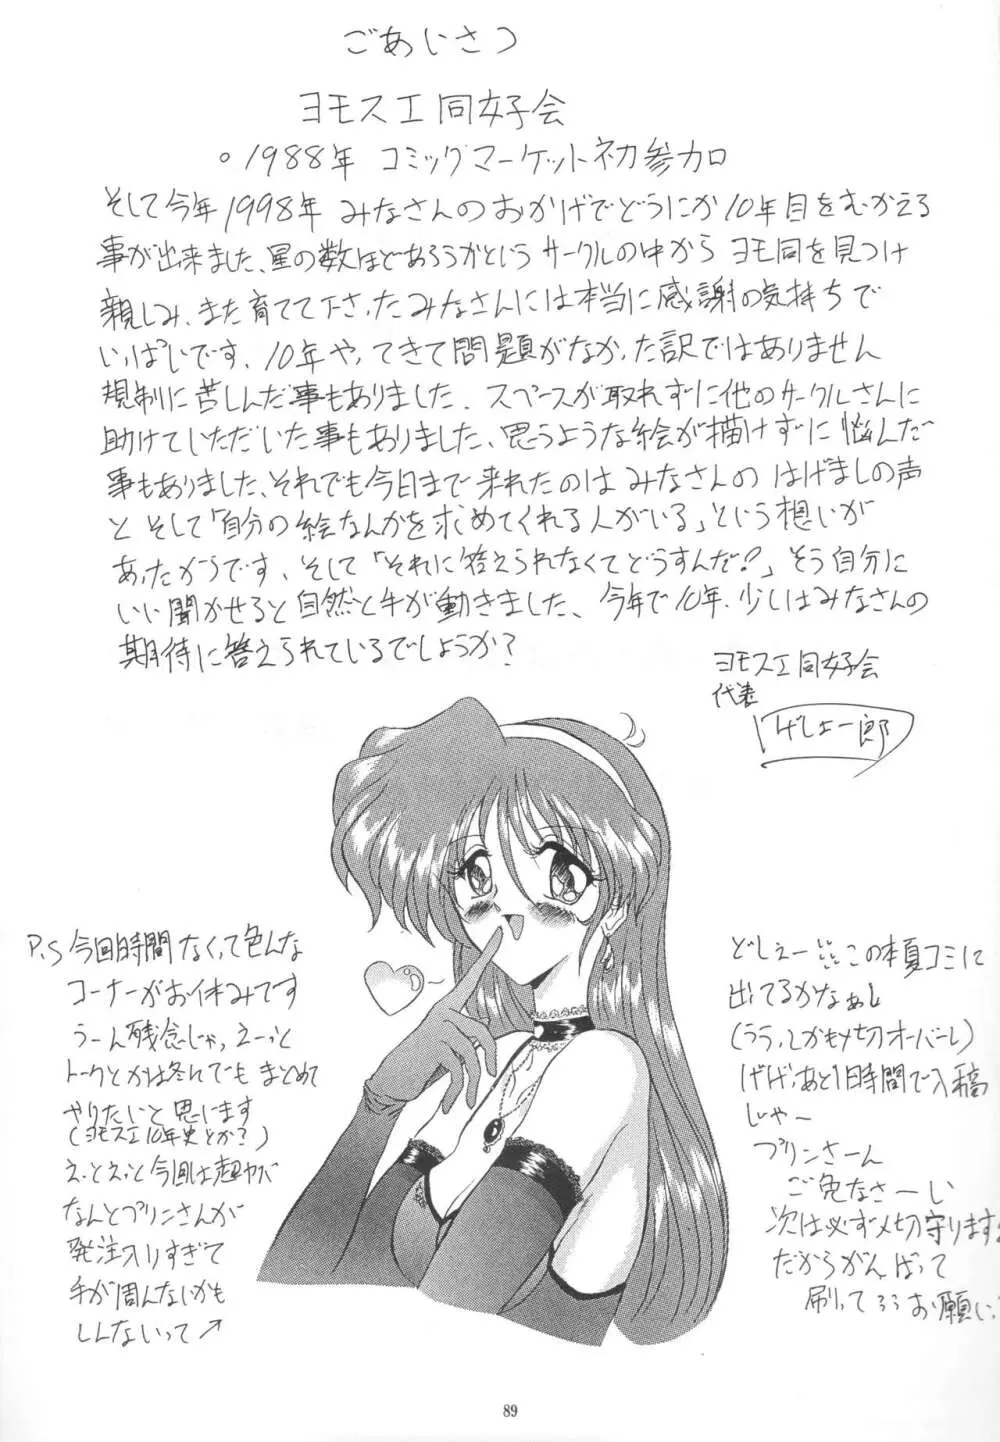 ごあいさつ
ヨモスエ同好会
。1988年 コミックマーケット初参加
そして今年1998年 みなさんのおかげでどうにか10年目をむかえる
事が出来ました、星の数ほどあろうかというサークルの中から ヨモ同を見つけ
親しみ、また育てて下さったみなさんには本当に感謝の気持ちで
いっぱいです、10年やってきて問題がなかった訳ではありません
規制に苦しんだ事もありました、スペースが取れずに他のサークルさんに
助けていただいた事もありました、思うような絵が描けずに悩んだ
事もありました、それでも今日まで来れたのは みなさんの はげましの声
と そして「自分の絵なんかを求めてくれる人がいる」という想いが
あったからです、そして「それに答えられなくてどうすんだ?」そう自分に
いい聞かせると自然と手が動きました、今年で10年、少しはみなさんの
期待に答えられているでしょうか?
ヨモスエ同好会
代表
げしょ一郎
P.S 今回時間なくて色んな
コーナーがお休みです
うーん残念じゃっ えーっと
トークとかは冬んでもまとめて
やりたいと思います
(ヨモスエ10年史とか?)
えっとえっと今回は超ヤバ
なんとプリンさんが
発注入りすぎて
手が周んないかも
しんないって↗
どしぇー!!この本夏コミに
出てるかなぁし
(ううっしかも〆切オーバーし)
げげっあと1時間で入稿
じゃ〜
プリンさーん
ご免なさーい
次は必ず〆切守ります
だからがんばって
刷ってううお願い
89